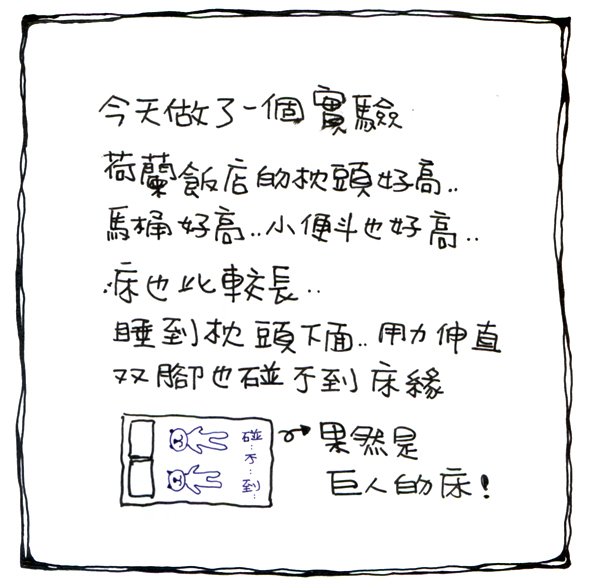 今天做了一個實驗
荷蘭飯店的枕頭好高..
馬桶好高..小便斗也好高..
床也比較長..
睡到枕頭下面..用力伸直
双腳也碰不到床緣
碰..不..到..
果然是
巨人的床!